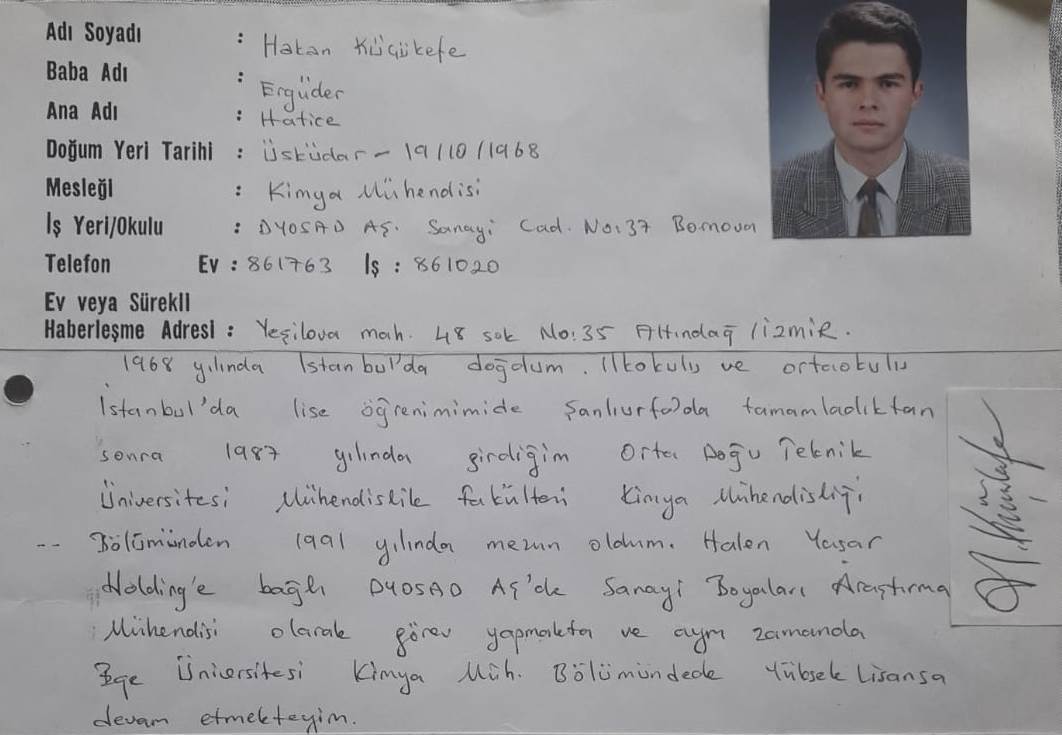 Adı Soyadı : Hakan Küçükefe
Baba Adı : Ergüder
Ana Adı : Hatice
Doğum Yeri Tarihi : Üsküdar - 19/10/1968
Mesleği : Kimya Mühendisi
İş Yeri/Okulu : DYOSAD AŞ. Sanayi Cad. No:37 Bornova
Telefon Ev : 861763 İş : 861020
Ev veya Sürekli
Haberleşme Adresi : Yeşilova mah. 48 sok No:35 Altındağ /İZMİR.
1968 yılında İstanbul'da doğdum. İlkokulu ve ortaokulu
İstanbul'da lise öğrenimimide Şanlıurfa'da tamamladıktan
sonra 1987 yılında girdiğim Orta Doğu Teknik
Üniversitesi Mühendislik fakültesi Kimya Mühendisliği
Bölümünden 1991 yılında mezun oldum. Halen Yaşar
Holding'e bağlı DYOSAD AŞ'de Sanayi Boyaları Araştırma
Mühendisi olarak görev yapmakta ve aynı zamanda
Ege Üniversitesi Kimya Müh. Bölümündede Yüksek Lisansa
devam etmekteyim.